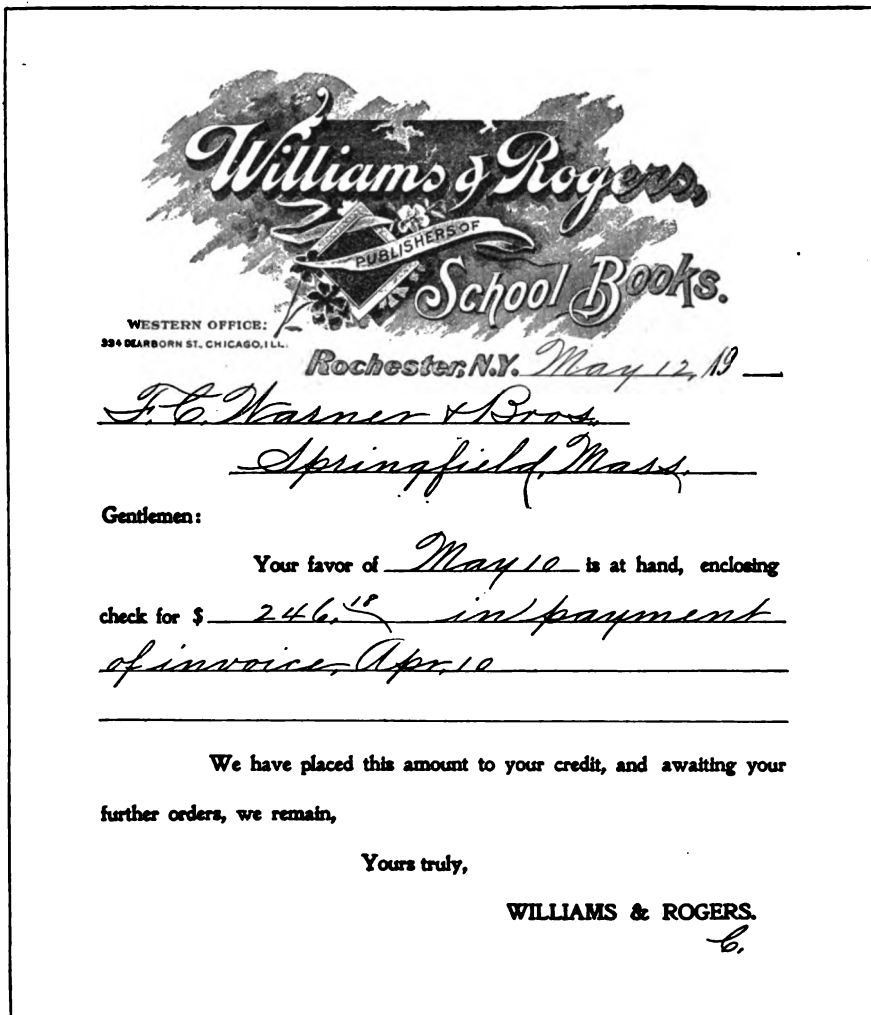 Williams & Rogers,
PUBLISHERS OF
School Books.
WESTERN OFFICE:
334 DEARBORN ST., CHICAGO, ILL.
Rochester, N.Y. May 12, 19
F. C. Warner & Bros.
Springfield, Mass.
Gentlemen:
Your favor of May 10 is at hand, enclosing
check for $ 246.18 in payment
of invoice, Apr. 10
We have placed this amount to your credit, and awaiting your
further orders, we remain,
Yours truly,
WILLIAMS & ROGERS.
C.